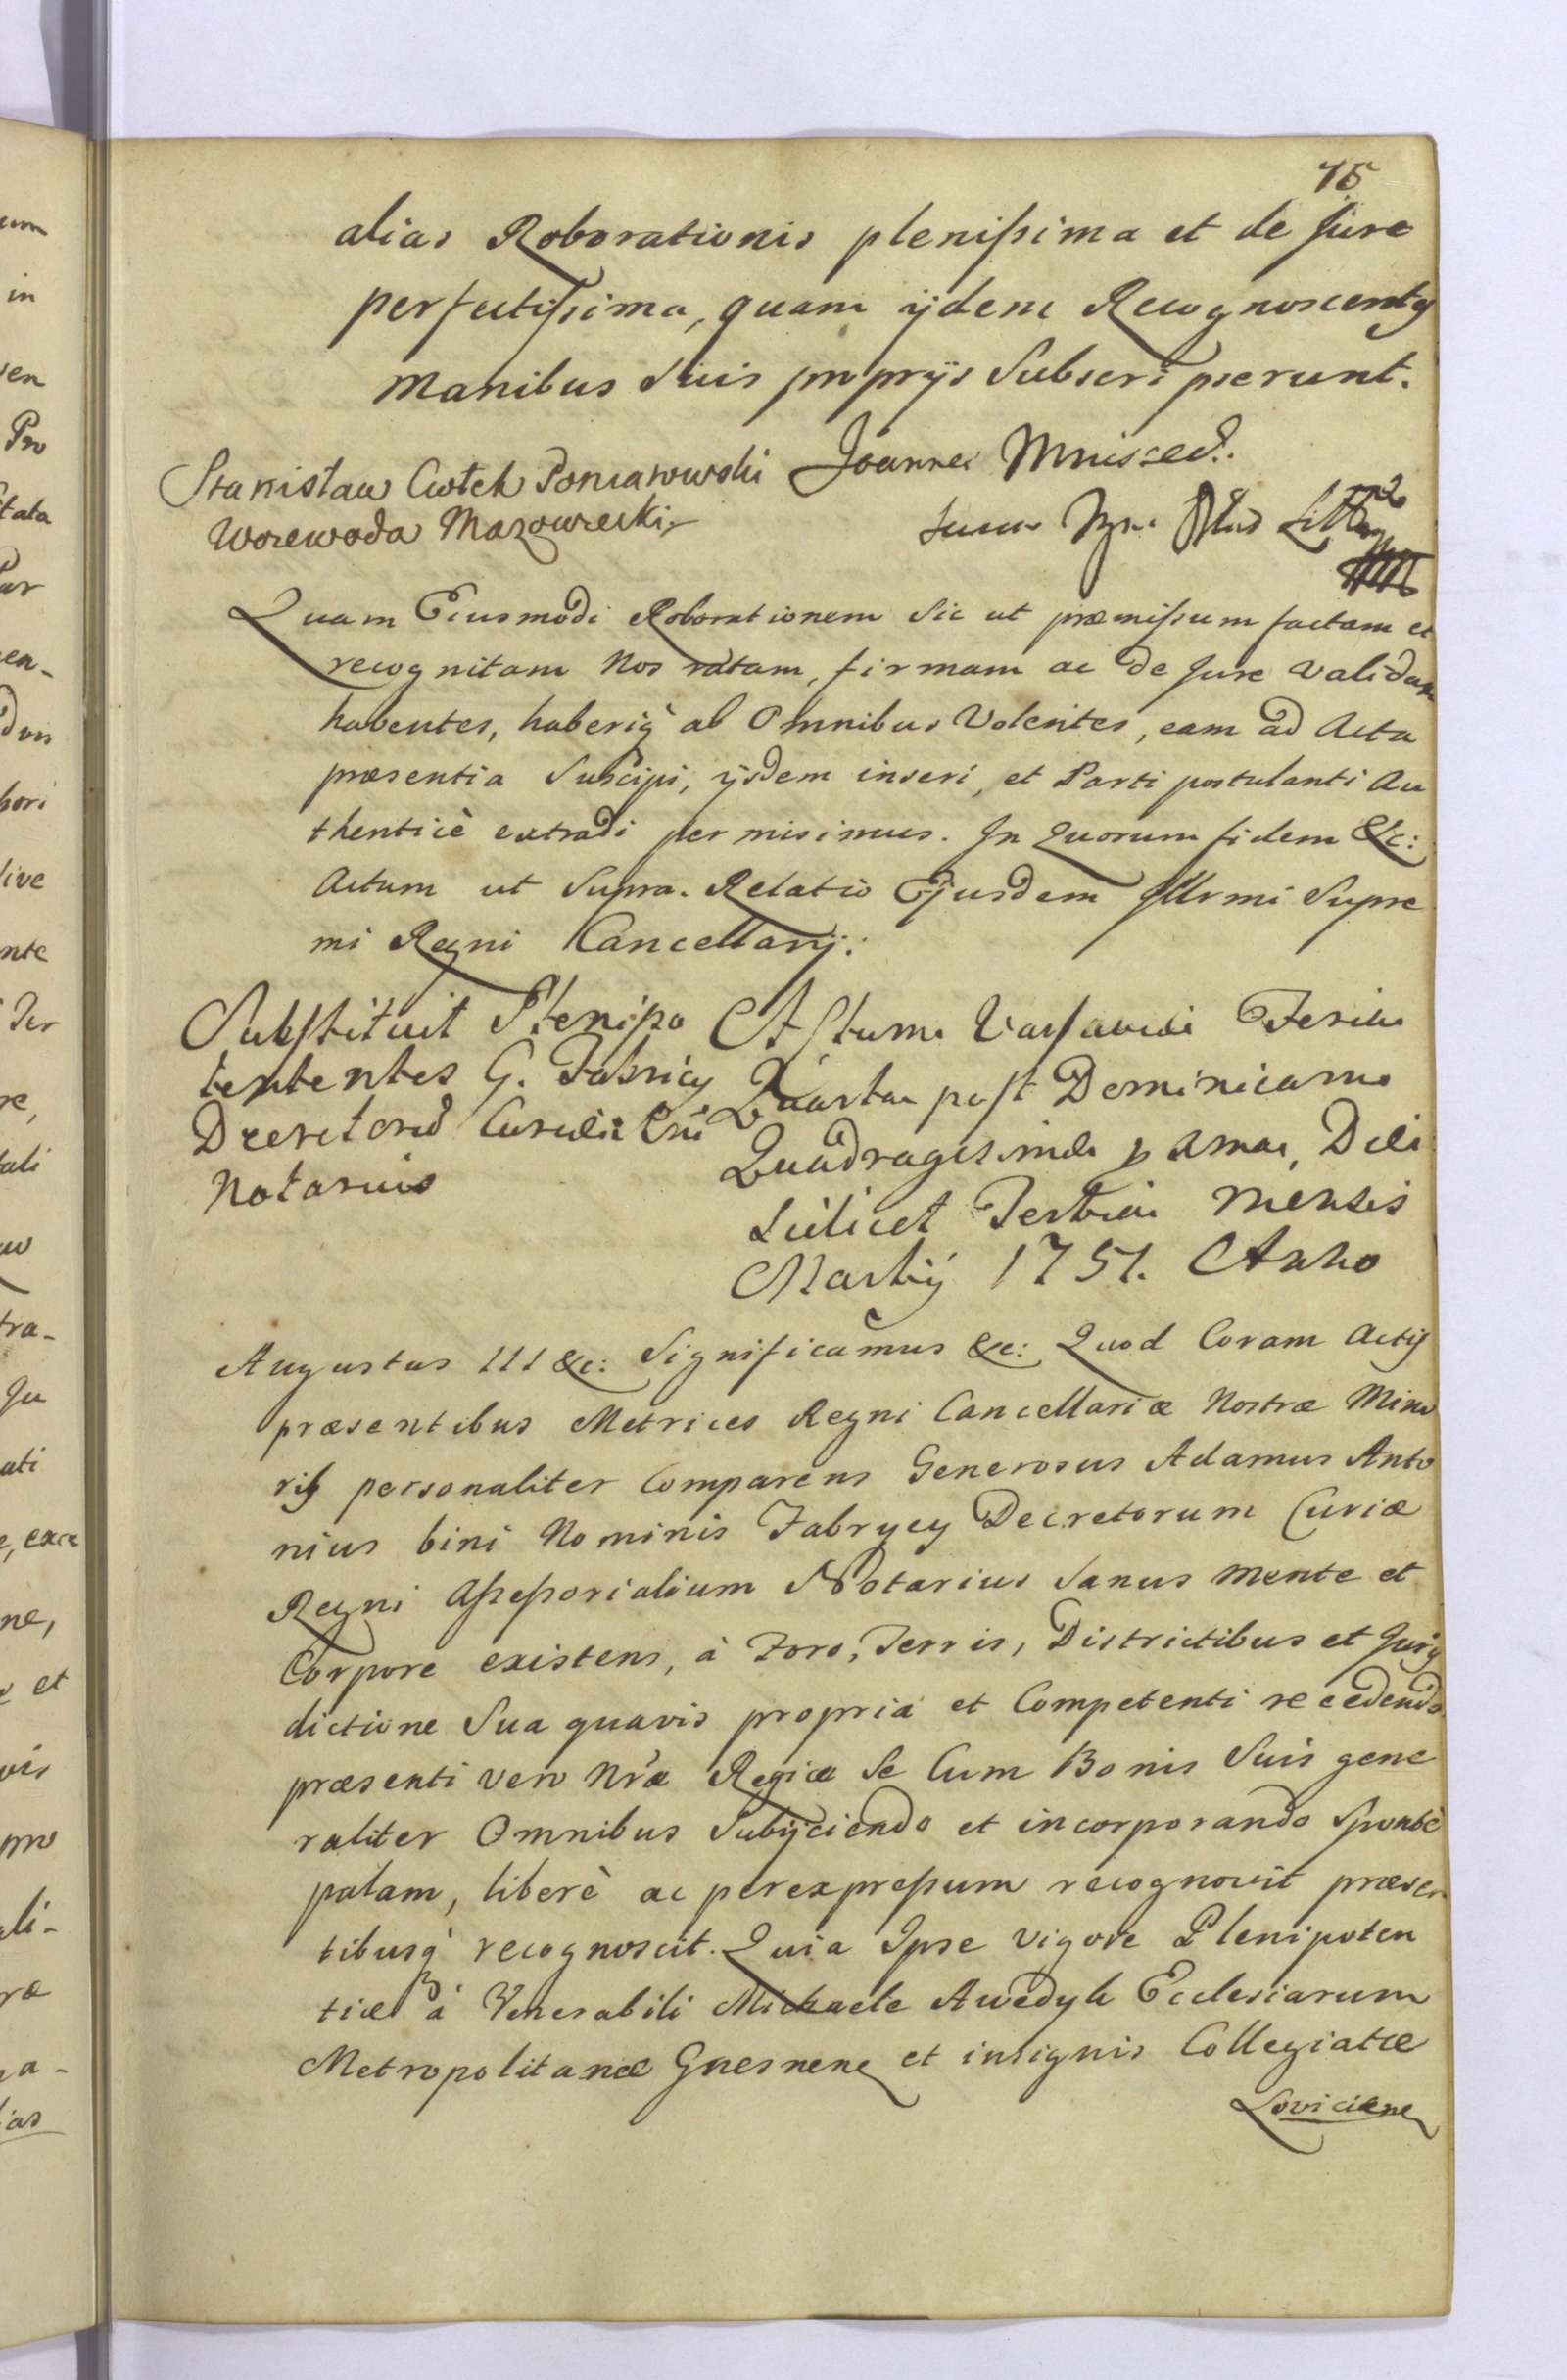 75
alias Roborationis plenissima et de Jure
perfectissima, quam ijdem Recognoscentes
manibus suis proprijs Subscripserunt.
Stanisław Ciołek Poniatowski
Woiewoda Mazowiecki
Joannes Mniszech.
Quam Eiusmodi Roborationem Sic ut præmissum factam et
recognitam Nos ratam, firmam ac de Jure validam
habentes, haberiq́ ab Omnibus Volentes, eam ad Acta
præsentia Suscipi, ijsdem inseri, et Parti postulanti Au
thenticè extradi permisimus. In Quorum fidem &c:
Actum ut Supra. Relatio Ejusdem Illrmi Supre
mi Regni Cancellarij:
Substituit Plenipo
tentes G. Fabricy
Decretorũ
Notarius
Actum Varsaviæ Feria
Quarta post Dominicam
Quadragesimæ 1mam, Die
Scilicet Tertia mensis
Martij 1751. Anno
Augustus III &c: Significamus &c: Quod Coram Actis
præsentibus Metrices Regni Cancellariæ Nostræ Mino
ris personaliter Comparens Generosus Adamus Anto
nius bini Nominis Fabrycy Decretorum Curiæ
Regni Assessorialium Notarius Sanus mente et
Corpore existens, à Foro, Terris, Districtibus et Juris
dictione Sua quavis propria et Competenti recedendo
præsenti vero Nræ Regiæ Se Cum Bonis Suis gene
raliter Omnibus Subijciendo et incorporando Spontè
palam, liberè ac per expressum recognovit præsen
tibusq́ recognoscit. Quia Ipse vigore Plenipoten
tiæ à Venerabili Michaele Awedyk Ecclesiarum
Metropolitanæ Gnesnene et insignis Collegiatæ
Loviciene